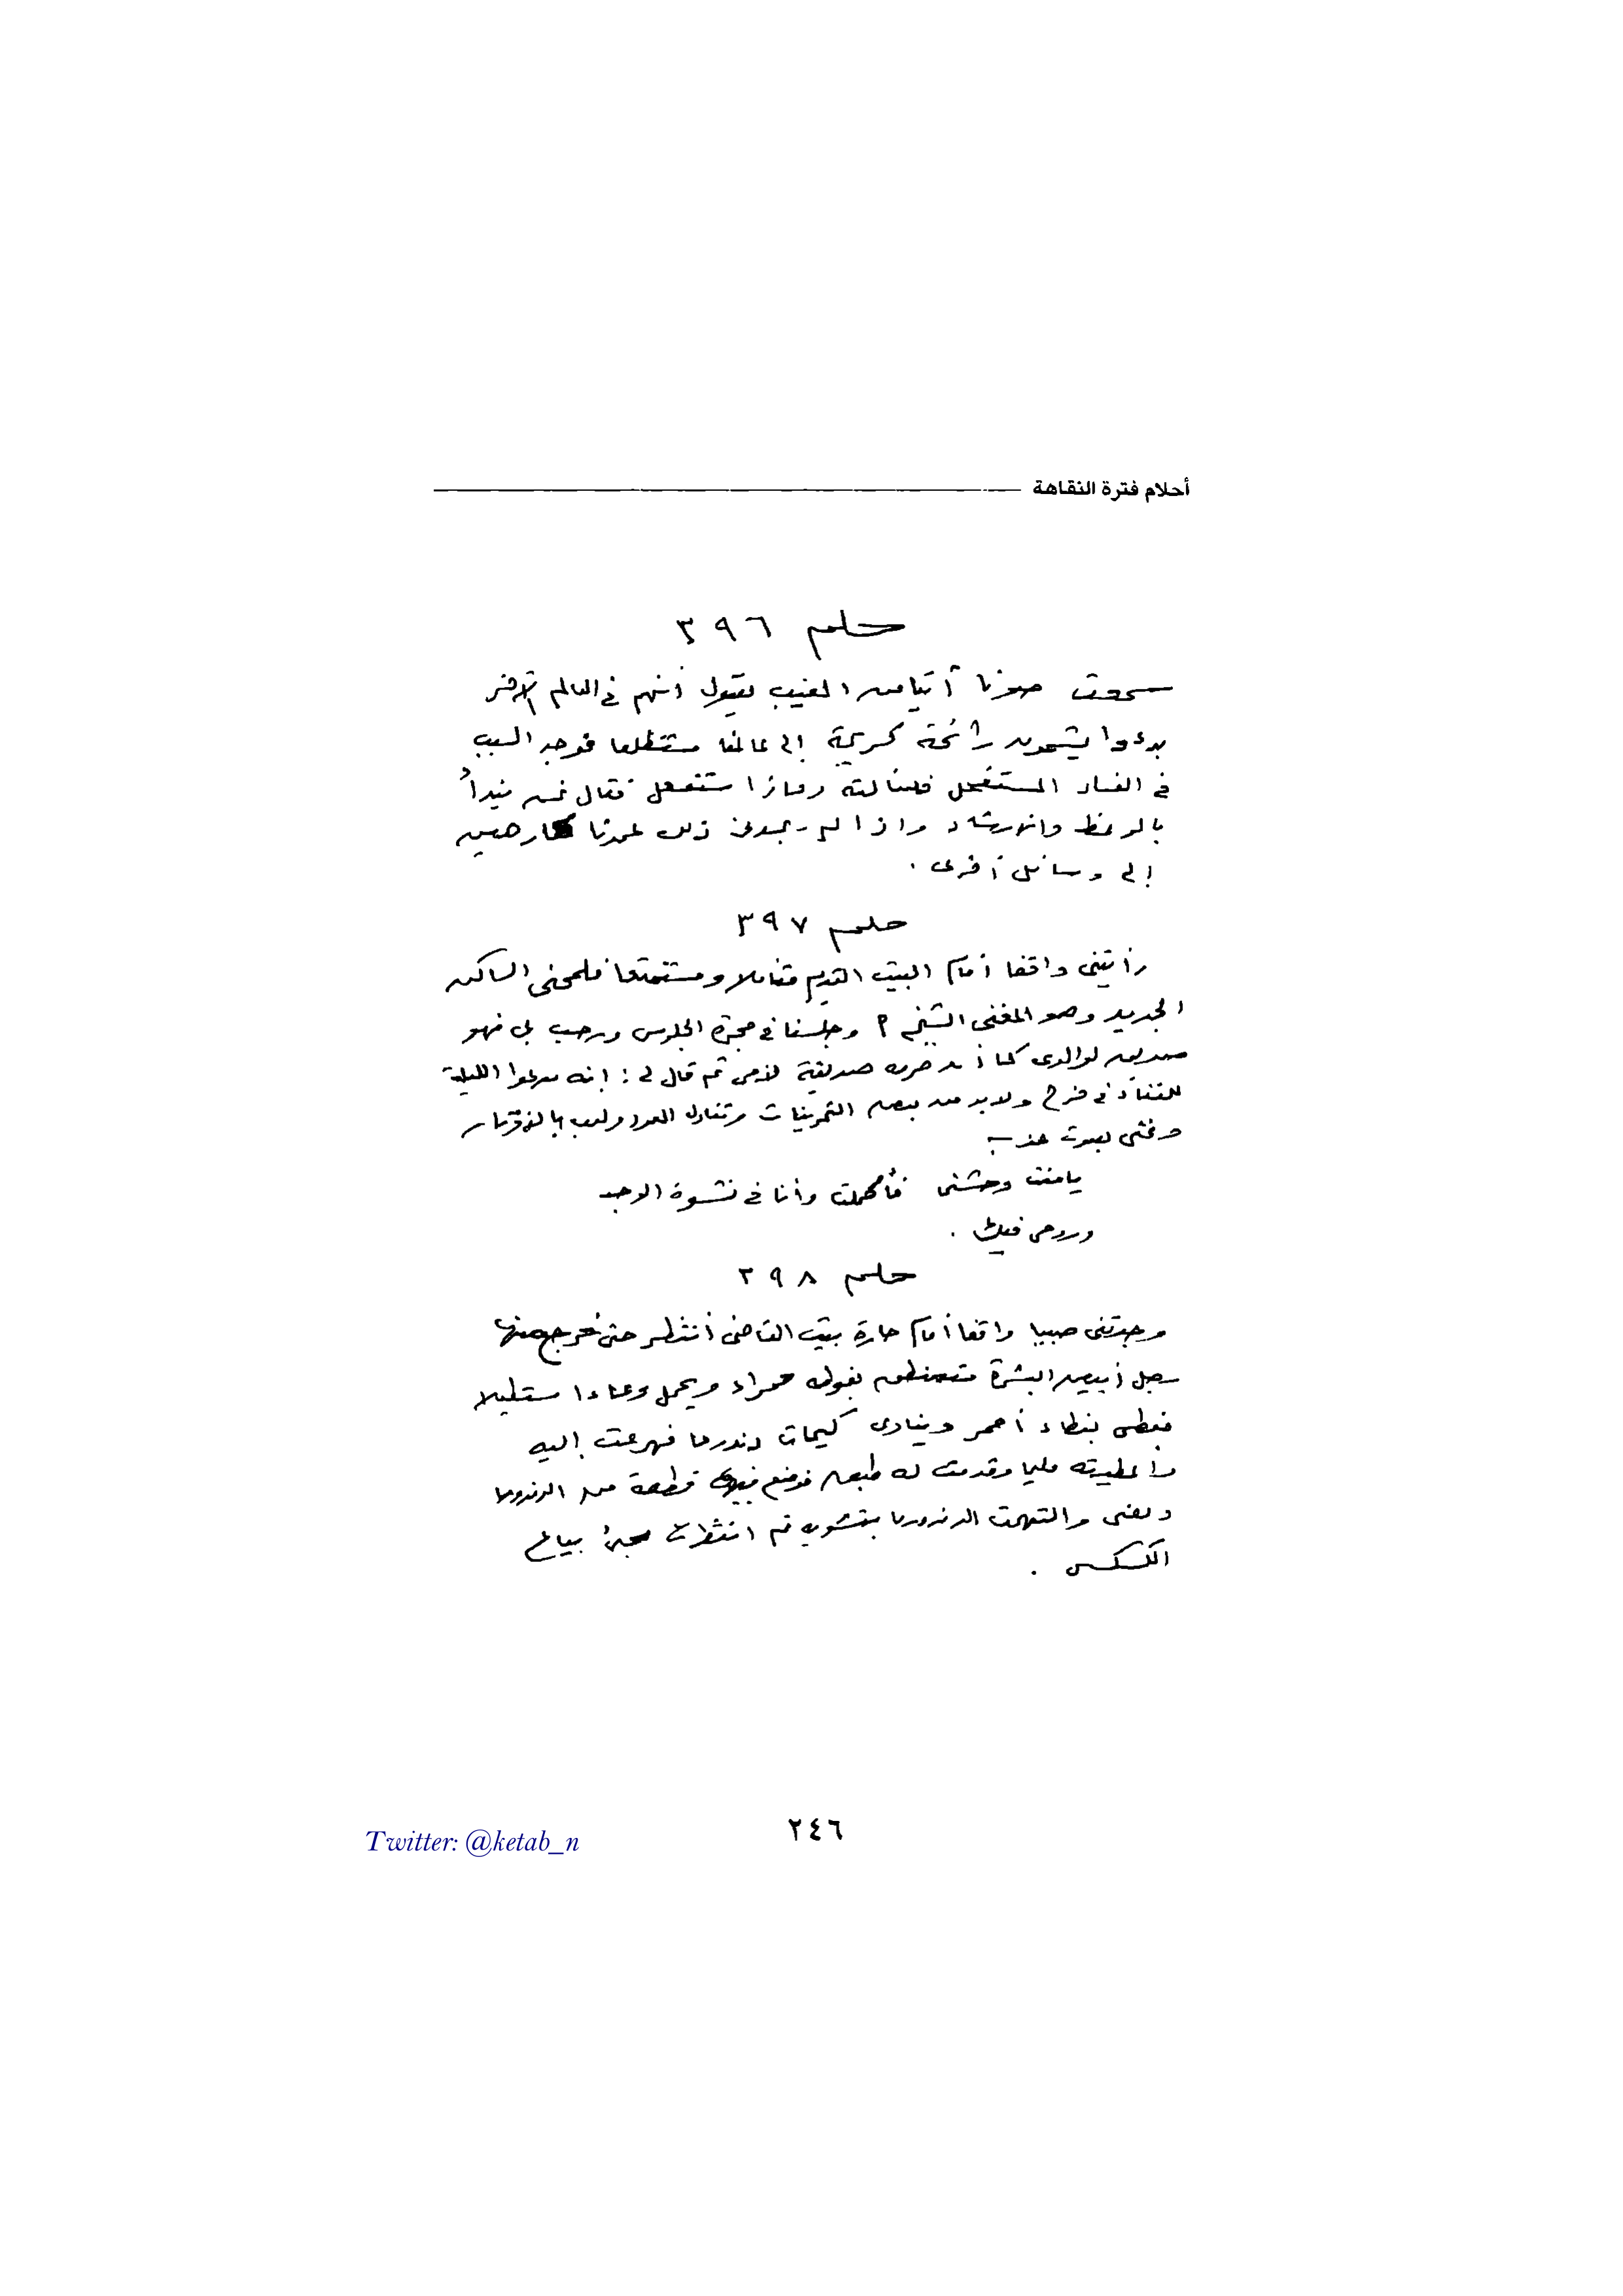 أحلام فترة النقاهة
حلم ٣٩٦
سمعت صوتا آتيا من الغيب يقول أنهم فى العالم الآخر
بدءوا يشمون رائحة كريهة إلى عالمنا متطلعا فوجد السبب
فى الفساد المستفحل فسألته وماذا ستفعل فقال نحن نبدأ
بالوعظ والارشاد واذا لم يجد ذلك عمدنا كارهين
إلى وسائل أخرى .
حلم ٣٩٧
رأيتنى واقفا أمام البيت القديم متأملا ومستمتعا فلمحنى الساكن
الجديد وهو المغنى الشيخ م وجلسنا فى حجرة الجلوس ورحب بى فهو
صديق لوالدى كما أن حرمه صديقة لأمى ثم قال لى : انه مدعوا الليلة
للغناء فى فرح ولابد من بعض التمرينات وتناول العود ولعب بالأوتار
وغنى بصوت عذب
يا منت وحشنى فأكملت وأنا فى نشوة الوجد
وروحى فيك .
حلم ٣٩٨
وجدتنى صبيا واقفا أمام حارة بيت القاضى أنتظر حتى خرج منها
رجل أبيض البشرة متمنطق بفوطة حمراء ويحمل وعاءا مستطيلا
مغطى بغطاء أحمر وينادى كيمات دندرما فهرعت إليه
وأعطيته مليما وقدمت له طبق فوضع فيه قطعة من الدندرما
ومضى والتهمت الدندورما بتشوق ثم انتظرت مجئ بياع
الكسكسى .
٢٤٦
Twitter: @ketab_n